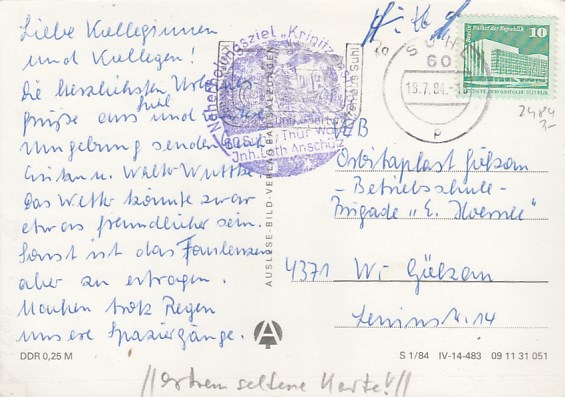 Liebe Kolleginnen
und Kollegen!
Die herzlichsten Urlaubs
grüße aus Suhl und
Umgebung senden Euch
und u. Walter Wuttke
Das Wetter könnte zwar
etwas freundlicher sein.
Sonst ist das Faulenzen
aber zu ertragen.
Machen trotz Regen
unsere Spaziergänge.
DDR 0,25 M
Naherholungsziel „Krinitzenstube“ Suhl
6051
Thür Wald
Inh. Loth. Anschütz
AUSLESE-BILD-VERLAG BAD SALZUNGEN
SUHL
60
18.7.84.-
p
Palast der Republik
10
DDR
2484
3,-
VEB
Orbitaplast Gölzau
- Betriebsschule -
Brigade „E.
4371 W.- Gölzau
Leninstr. 14
S 1/84 IV-14-483 09 11 31 051
//extrem seltene Karte!//